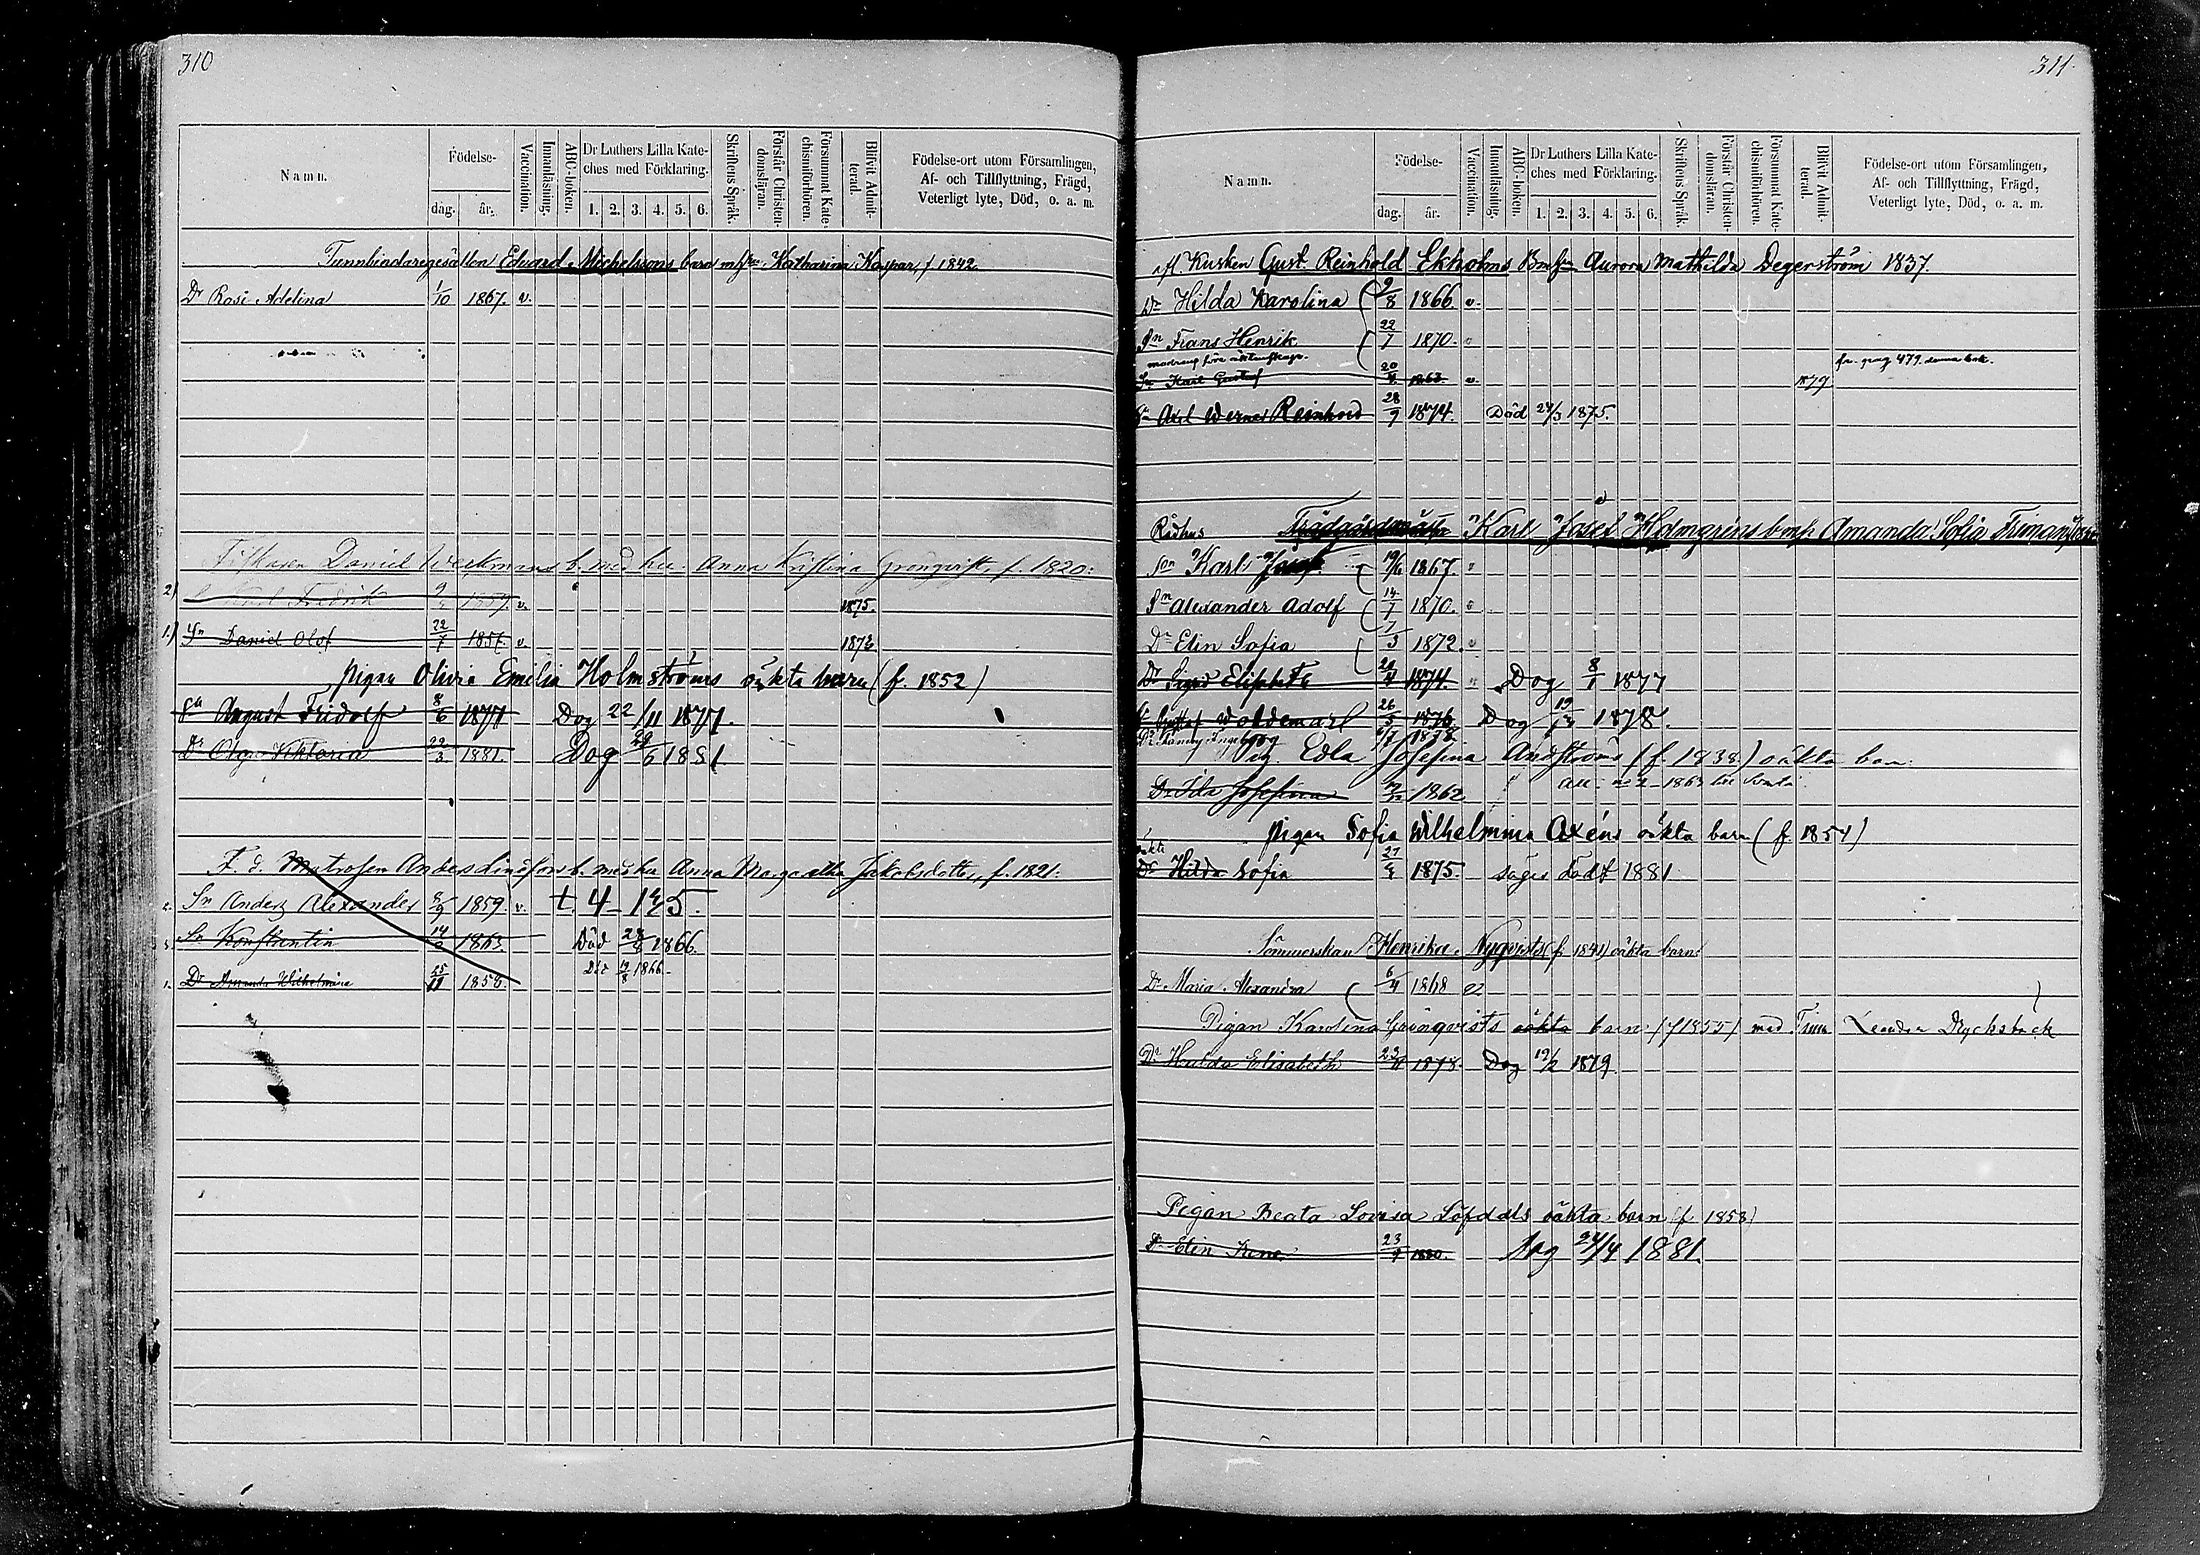 310
Namn.
Födelse-
dag.
år.
Vaccination.
Innanläsning.
ABC-boken.
Dr Luthers Lilla Kate-
ches med Förklaring.
1. 2. 3. 4. 5. 6.
Skriftens Språk.
Förstår Christen-
domsläran.
Försummat Kate-
chismiförhören.
Blifvit Admit-
terad.
Födelse-ort utom Församlingen,
Af- och Tillflyttning, Frägd,
Veterligt lyte, Död, o. a. m.
Tunnbindaregesällen Edvard Michelssons barn m hu Katharina Kaspar, f 1842
Dr Rosi Adelina 1/10 1867. v.
Fiskaren Daniel Weckmans b. med hu. Anna Kristina Grönqvist, f. 1820.
2) Fredrik v. 1875.
1.) Sn Daniel Olof 22/7 v.
pigan Olivia Emilia Holmströms oäkta barn (f. 1852)
Sn August Fridolf 8/6 1877 Dog 22/11 1877.
Dr Olga Viktoria 22/3 1881. Dog 1881
F. d. Matrosen Anders Lindfors b. med hu Anna Margaretha Jakobsdotter, f. 1821.
2. Sn Anders Alexander 1859. v.
3. Sn Konstantin 1863. Död 1866.
1. Dr Amanda Wilhelmina 25/11 Död 1866.
311.
Namn.
Födelse-
dag.
år.
Vaccination.
Innanläsning.
ABC-boken.
Dr Luthers Lilla Kate-
ches med Förklaring.
1. 2. 3. 4. 5. 6.
Skriftens Språk.
Förstår Christen-
domsläran.
Försummat Kate-
chismiförhören.
Blifvit Admit-
terad.
Födelse-ort utom Församlingen,
Af- och Tillflyttning, Frägd,
Veterligt lyte, Död, o. a. m.
afl Kusken Gust. Reinhold Ekholms Bmhu Aurora Mathilda Degerström 1837.
Dr Hilda Karolina 9/8 1866 v.
Sn Frans Henrik 22/7 1870.
479. denna bok.
Sn Karl Gustaf v. 1879
Sn Axel Werner Reinhold 28/9 1874. Död 1875.
Rådhus Karl Josef Holmgrens Amanda Sofia
Son Karl Josef 1867.
Sn Alexander Adolf 14/7 1870.
Dr Elin Sofia 7/3 1872.
Dr Sigrid Elisabeth 1874. Dog 8/1 1877
Sn Gustaf Woldemar 1876. Dog 1878.
Dr Fanny Ingeborg 1878
Pig. Edla Josefina (f. 1838.) oäkta barn.
Dr Ida Josefina 1862
pigan Sofia Wilhelmina Axéns oäkta barn (f. 1854)
oäkta
Dr Hilda Sofia 1875. säges död 1881
Sömmerskan Henrika Nyqvists oäkta barn.
Dr Maria Alexandra 6/4 1868
Pigan Karolina Grönqvists oäkta barn (f 1855) med Leander Dycksbäck
Dr Hulda Elisabeth 1878. Dog 19/2 1879
Pigan Beata Lovisa Löfdals oäkta barn (f. 1858)
Dr Elin Irene 23/9 1880. Dog 1881.